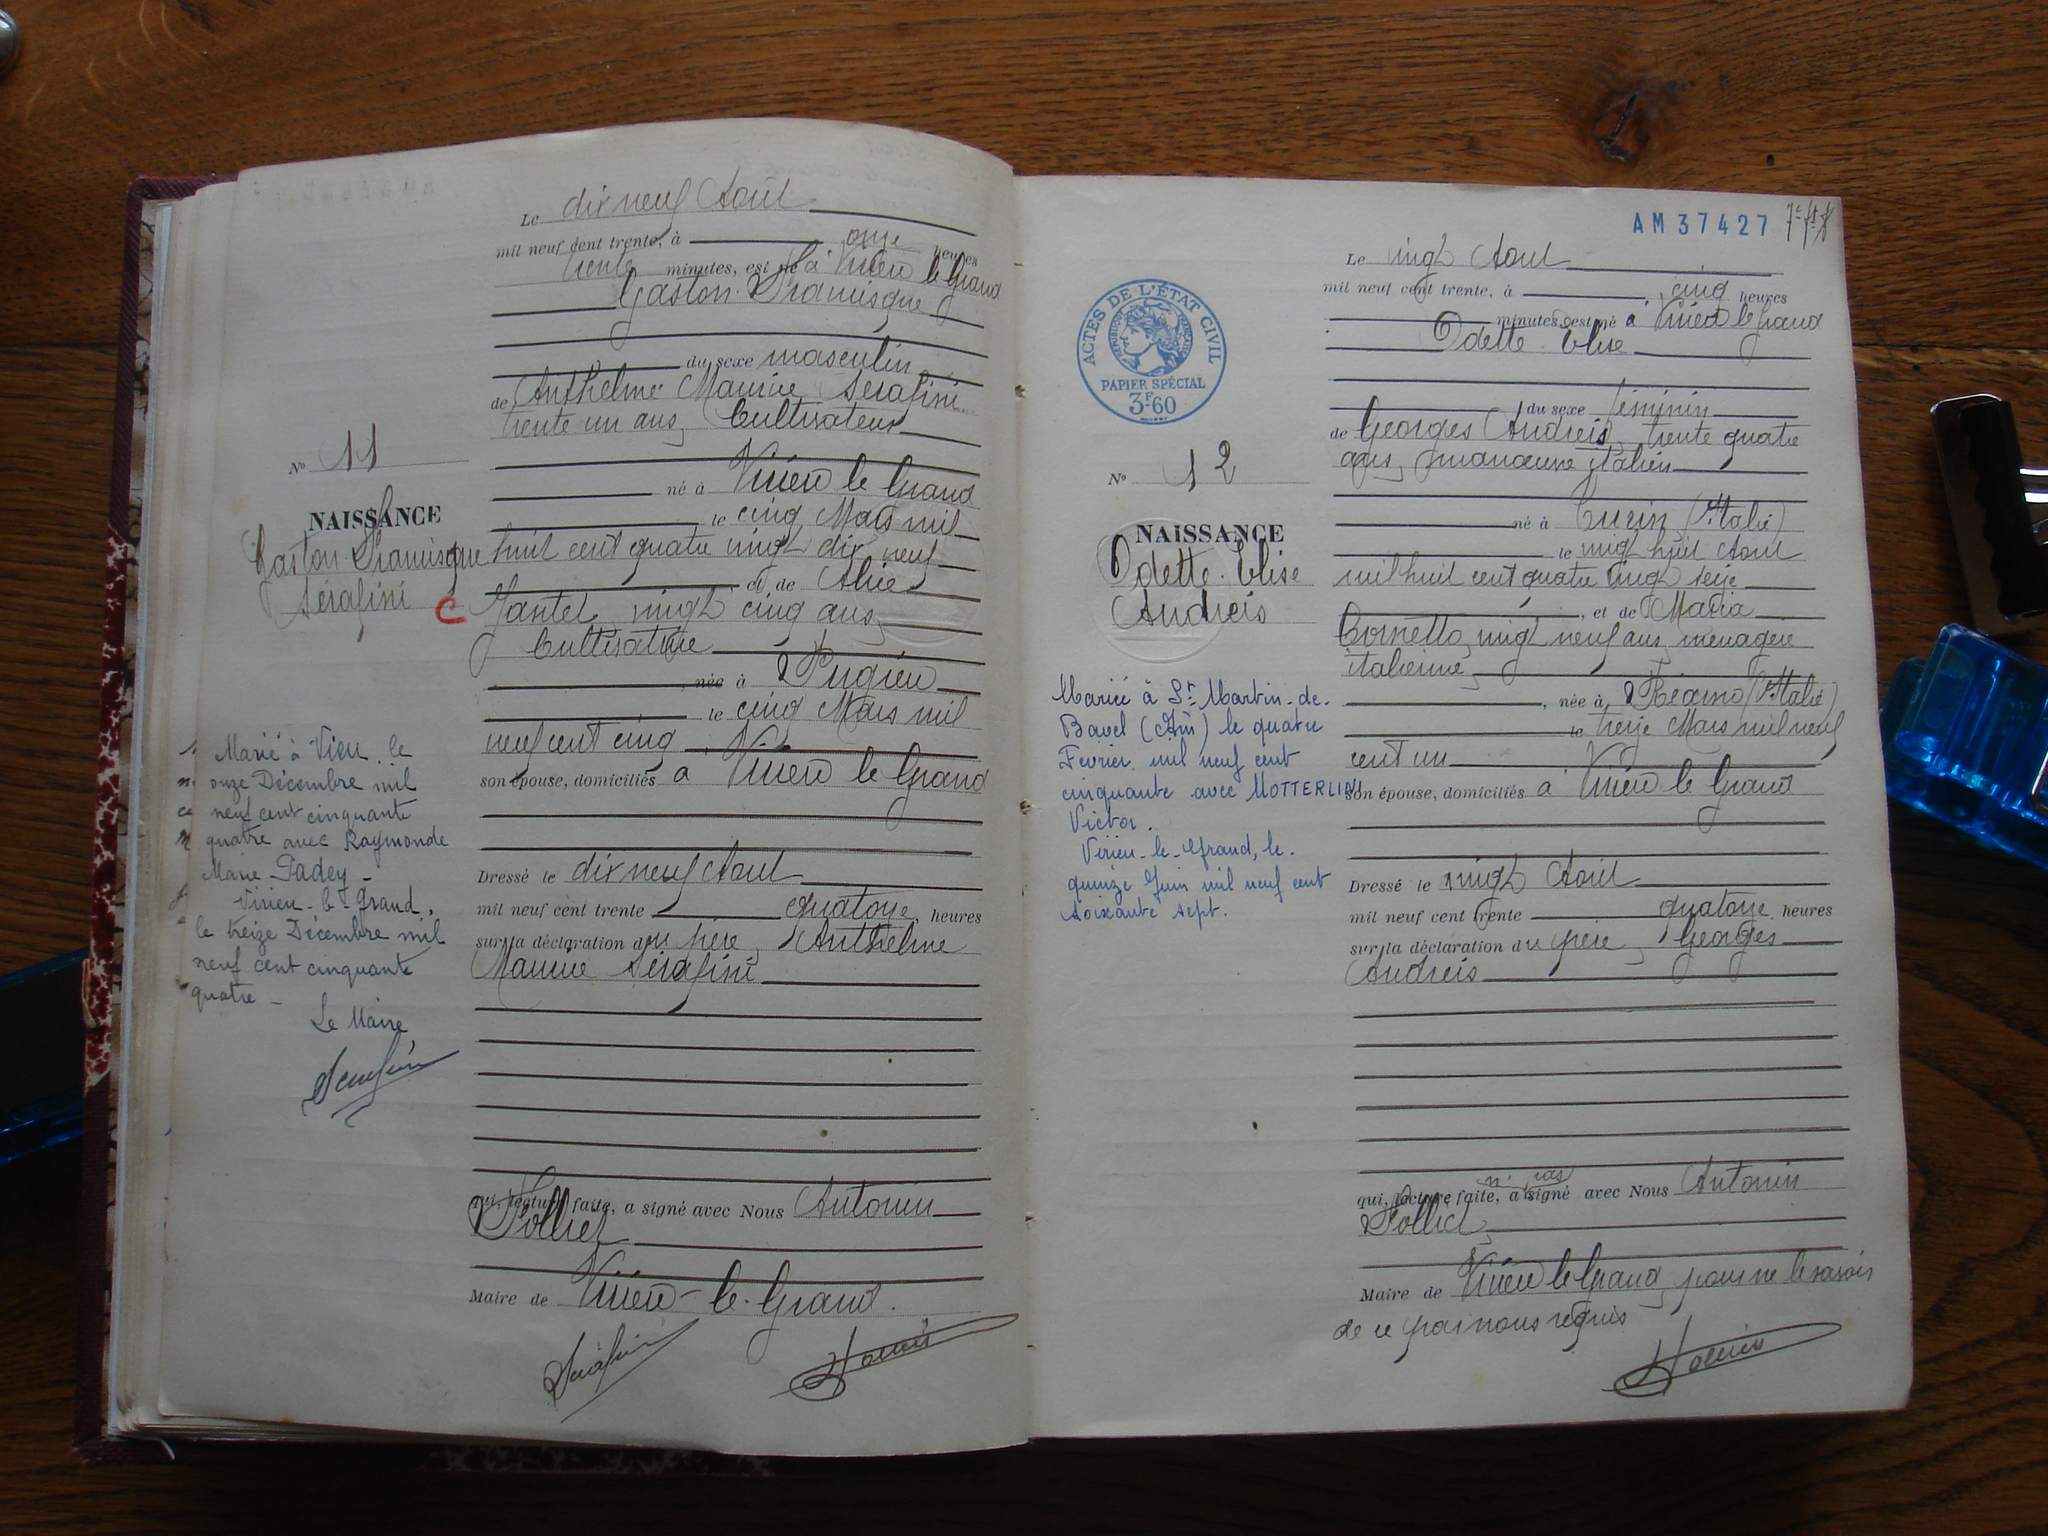 Le dix neuf Août
mil neuf cent trente, à onze heures
trente minutes, est né à Virieu le Grand
Gaston Francisque
du sexe masculin
de Anthelme Maurice Serafini
trente un ans, Cultivateur
né à Virieu le Grand
le cinq Mars mil
huit cent quatre vingt dix neuf
et de Alice
Jantet, vingt cinq ans,
Cultivatrice
née à Pugieu
le cinq Mars mil
neuf cent cinq
son épouse, domiciliés à Virieu le Grand
Dressé le dix neuf Août
mil neuf cent trente quatorze heures
sur la déclaration du père, Anthelme
Maurice Sérafini
qui, lecture faite, a signé avec Nous Antonin
Pollier
Maire de Virieu-le-Grand.
Nº 11
NAISSANCE
Gaston Francisque
Sérafini
C
Marié à Vieu le
onze Décembre mil
neuf cent cinquante
quatre avec Raymonde
Marie Padey -
Virieu-le-Grand,
le treize Décembre mil
neuf cent cinquante
quatre -
Le Maire
Serafini
Serafini
AM37427
ACTES DE L'ÉTAT CIVIL
RÉPUBLIQUE FRANÇAISE
PAPIER SPÉCIAL
3F60
Le vingt Août
mil neuf cent trente, à cinq heures
minutes, est né à Virieu le Grand
Odette Elise
du sexe féminin
de Georges Andreis, trente quatre
ans, manœuvre italien
né à Turin (Italie)
le vingt huit Août
mil huit cent quatre vingt seize
, et de Maria
Cornetto, vingt neuf ans, ménagère
italienne,
, née à (Italie)
le treize Mars mil neuf
cent un
son épouse, domiciliés à Virieu le Grand
Dressé le vingt Août
mil neuf cent trente quatorze heures
sur la déclaration du père, Georges
Andreis
n' pas
qui, lecture faite, a signé avec Nous Antonin
Pollier,
Maire de Virieu le Grand, pour ne le savoir
de ce par nous requis
Nº 12
NAISSANCE
Odette Elise
Andreis
Mariée à St Martin-de-
Bavel (Ain) le quatre
Février mil neuf cent
cinquante avec MOTTERLINI
Victor.
Virieu-le-Grand, le
quinze Juin mil neuf cent
soixante sept.